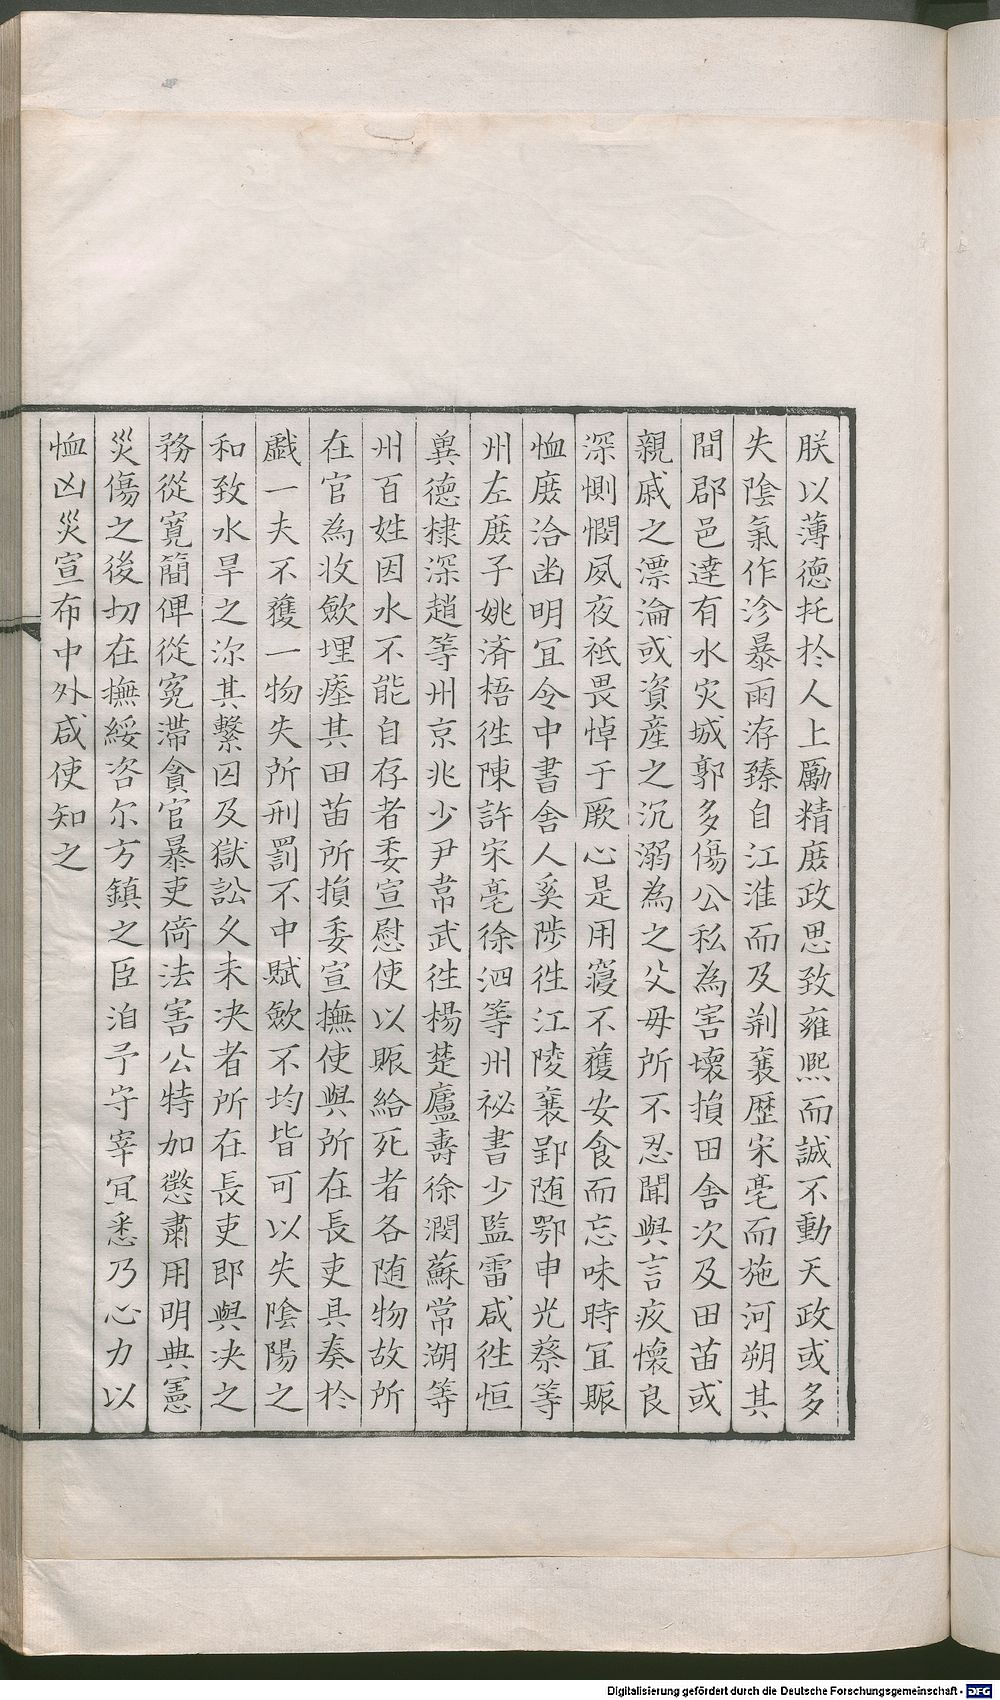 朕以薄德托於人上勵精庶政思致雍熙而誠不動天政或多
失陰氣作沴暴雨洊臻自江淮而及荆襄歷宋亳而施河朔其
間郡邑達有水灾城郭多傷公私為害壞損田舍次及田苗或
親戚之漂淪或資産之沉溺為之父母所不忍聞與言疚懷良
深惻憫夙夜祗畏悼于厥心是用寢不獲安食而忘味時宜賑
恤庶洽幽明宜令中書舍人奚陟徃江陵襄郢随鄂申光蔡等
州左庶子姚済梧徃陳許宋亳徐泗等州祕書少監雷咸徃恒
兾德棣深趙等州京兆少尹韋武徃楊楚廬壽徐潤蘇常湖等
州百姓因水不能自存者委宣慰使以賑給死者各随物故所
在官為收斂埋瘞其田苗所損委宣撫使與所在長吏具奏於
戲一夫不獲一物失所刑罰不中賦斂不均皆可以失陰陽之
和致水旱之沴其繫囚及獄訟久未决者所在長吏即與决之
務從寛簡俾從寃滯貪官暴吏倚法害公特加懲肅用明典憲
災傷之後切在撫綏咨尔方鎮之臣洎予守宰宜悉乃心力以
恤凶災宣布中外咸使知之
Digitalisierung gefördert durch die Deutsche Forschungsgemeinschaft - DFG